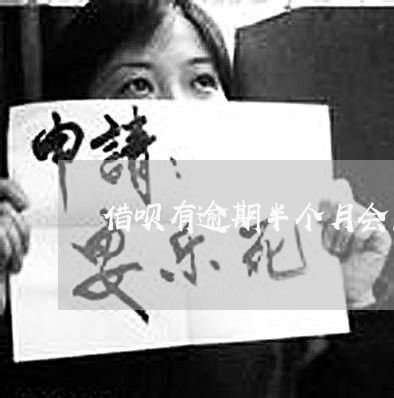 申請：
借呗有逾期半个月会
乐